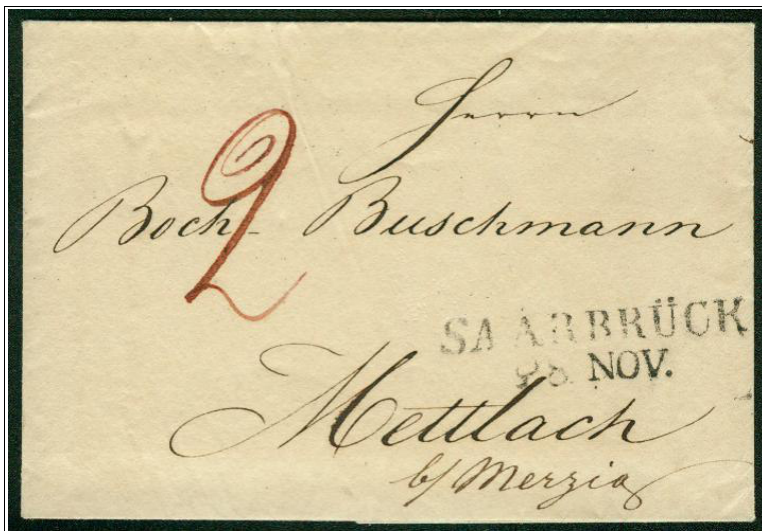 Herrn
2
Boch-Buschmann
SAARBRÜCK
28 NOV.
Mettlach
b/ Merzig